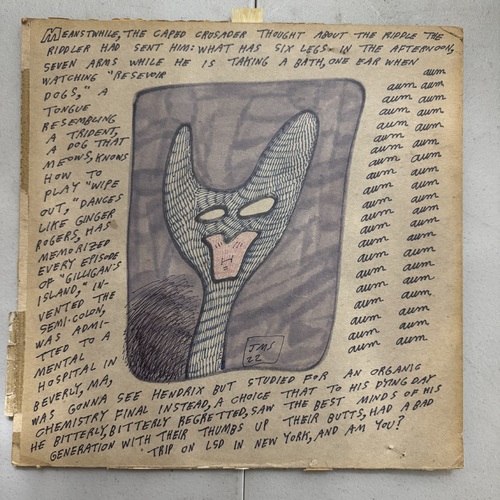 MEANSTWHILE, THE CAPED CRUSADER THOUGHT ABOUT THE RIDDLE THE
RIDDLER HAD SENT HIM: WHAT HAS SIX LEGS IN THE AFTERNOON,
SEVEN ARMS WHILE HE IS TAKING A BATH, ONE EAR WHEN
WATCHING "RESEVOIR
DOGS," A
TONGUE
RESEMBLING
A TRIDENT,
A DOG THAT
MEOWS, KNOWS
HOW TO
PLAY "WIPE
OUT," DANCES
LIKE GINGER
ROGERS, HAS
MEMORIZED
EVERY EPISODE
OF "GILLIGAN'S
ISLAND," IN-
VENTED THE
SEMI-COLON,
WAS ADMI-
TTED TO A
MENTAL
HOSPITAL IN
BEVERLY, MA,
WAS GONNA SEE HENDRIX BUT STUDIED FOR AN ORGANIC
CHEMISTRY FINAL INSTEAD, A CHOICE THAT TO HIS DYING DAY
HE BITTERLY, BITTERLY REGRETTED, SAW THE BEST MINDS OF HIS
GENERATION WITH THEIR THUMBS UP THEIR BUTTS, HAD A BAD
TRIP ON LSD IN NEW YORK, AND AM YOU?
aum
aum aum
aum aum
aum aum
aum aum
aum aum
aum aum
aum aum
aum aum
aum aum
aum aum
aum aum
aum aum
aum aum
aum aum
aum aum
aum aum
aum aum
JMS
22